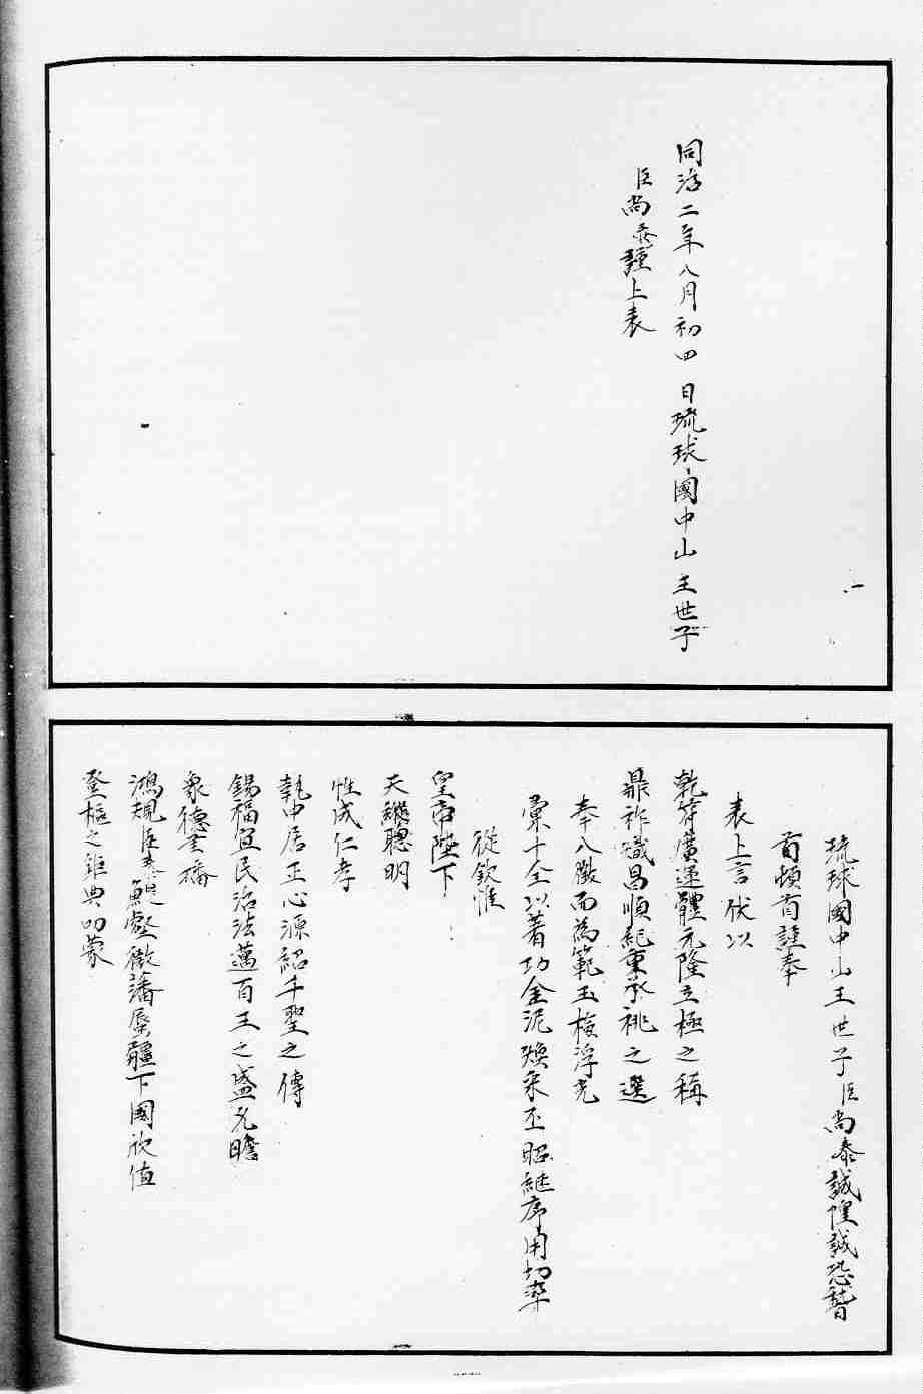 同治二年八月初四日琉球國中山王世子
臣尚泰謹上表
琉球國中山王世子臣尚泰誠惶誠恐稽
首頓首謹奉
表上言伏以
乾符廣運體元隆立極之稱
鼎祚熾昌順紀重承祧之選
奉八徵而為範玉檢浮光
彙十全以著功金泥煥采丕昭繼序用切率
從欽惟
皇帝陛下
天縱聰明
性成仁孝
執中居正心源紹千聖之傳
錫福宜民治法邁百王之盛允瞻
象德
鴻規臣泰鯷壑微藩蜃疆下國欣值
登樞之鉅典叨蒙